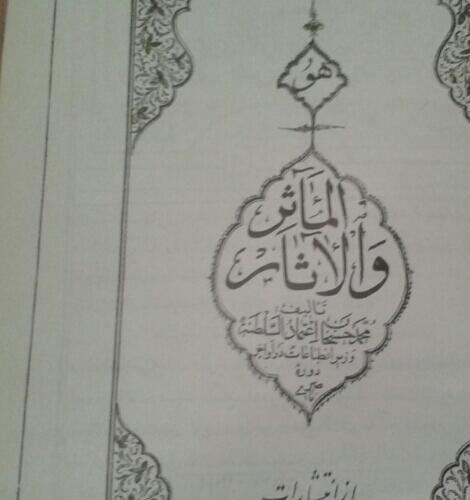 هو
المآثر
والآثار
تأليف
محمد حسنخان اعتماد السلطنة
وزیر انطباعات در اواخر
دوره
ناصری
از انتشارات